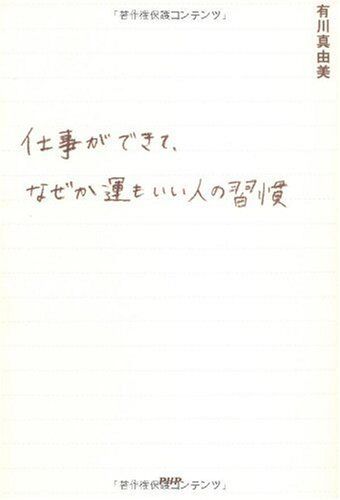 「著作権保護コンテンツ」
有川真由美
仕事ができて、
なぜか運もいい人の習慣
PHP
「著作権保護コンテンツ」